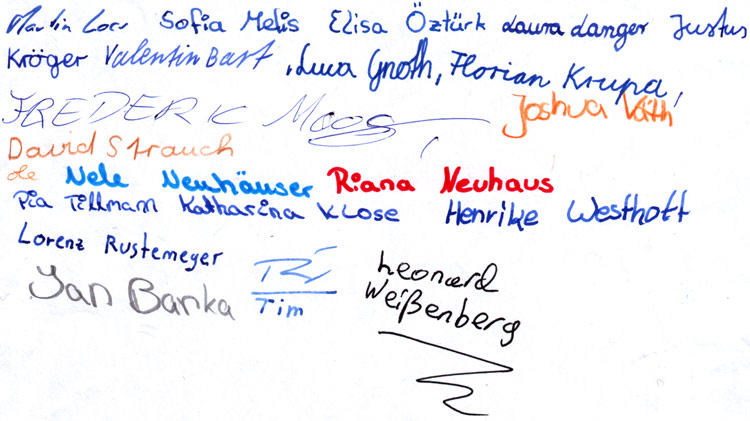 Martin Sofia Melis Elisa Öztürk Laura Langer Justus
Kröger Valentin Bast, Luca Gnoth, Florian Krupa,
FREDERIK Moos, Joshua Väth
David Strauch
Nele Neuhäuser Riana Neuhaus
Pia Tillmann Katharina Klose Henrike Westhoff
Lorenz Rustemeyer
Jan Banka Tim Leonard
Weißenberg